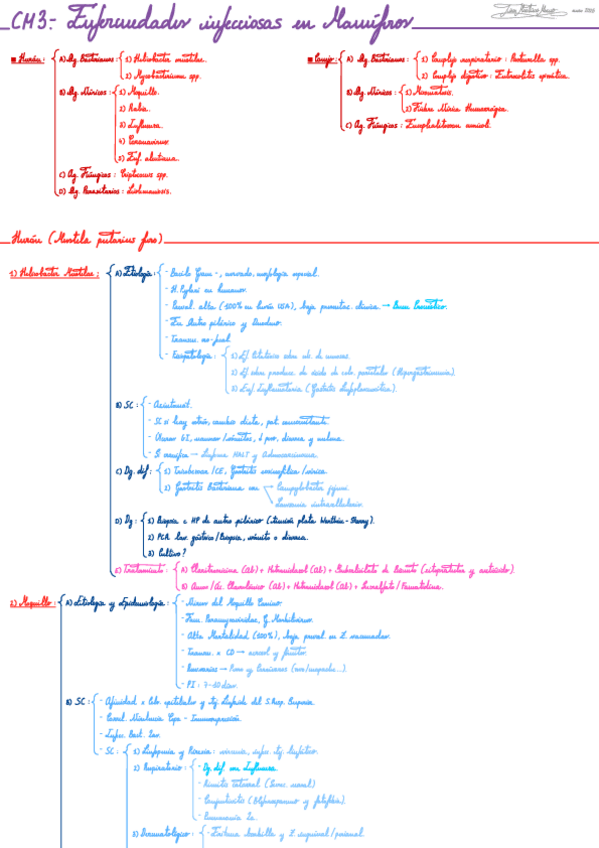 CM3: Enfermedades infecciosas en Mamíferos
Hurón: A) Ag. Bacterianos: 1) Helicobacter mustelae.
2) Mycobacterium spp.
B) Ag. Víricos: 1) Moquillo.
2) Rabia.
3) Influenza.
4) Coronavirus.
5) Enf. aleutiana.
C) Ag. Fúngicos: Criptococcus spp.
D) Ag. Parasitarios: Leishmaniosis.
Conejo: A) Ag. Bacterianos: 1) Complejo respiratorio: Pasteurella spp.
2) Complejo digestivo: Enterocolitis epizoótica.
B) Ag. Víricos: 1) Mixomatosis.
2) Fiebre Vírica Hemorrágica.
C) Ag. Fúngicos: Encephalitozoon cuniculi.
Hurón (Mustela putorius furo)
1) Helicobacter Mustelae: A) Etiología: - Bacilo Gram -, curvado, morfología espiral.
- H. Pylori en humanos.
- Preval. alta (100% en hurón USA), baja presentac. clínica → Buen Pronóstico.
- En Antro pilórico y Duodeno.
- Transm. oro-fecal.
- Etiopatología: 1) Ef. Citotóxico sobre cél. de mucosa.
2) Ef. sobre producc. de ácido de cels. parietales (Hipergastrinemia).
3) Enf. Inflamatoria (Gastritis Linfoplasmocítica).
B) SC: - Asintomát.
- SC si hay estrés, cambios dieta, pat. concomitante.
- Úlceras GI, nauseas/vómitos, ↓ peso, diarrea y melena.
- Si cronifica → Linfoma MALT y Adenocarcinoma.
C) Dg. dif: 1) Tricobezoar/CE, Gastritis eosinofílica/vírica.
2) Gastritis bacteriana con Campylobacter jejuni.
Lawsonia intracellularis.
D) Dg: 1) Biopsia e HP de antro pilórico (tinción plata Warthin-Starry).
2) PCR lav. gástrico/Biopsia, vómito o diarrea.
3) Cultivo?
E) Tratamiento: A) Claritromicina (Ab) + Metronidazol (Ab) + Subsalicilato de Bismuto (citoprotector y antiácido).
B) Amox/Ác. Clavulánico (Ab) + Metronidazol (Ab) + Sucralfato/Famotidina.
2) Moquillo: A) Etiología y Epidemiología: - Mismo del Moquillo Canino.
- Fam. Paramyxoviridae, G. Morbillivirus.
- Alta Mortalidad (100%), baja preval. en
- Transm. x CD → aerosol y fómites.
- PI: 7-10 días.
B) SC: - Afinidad x Céls. epiteliales y Tej. Linfoide del S. Resp. Superior.
- Inmunosupresión
- Infec. Bact. 2ar.
- SC: 1) Linfopenia y Viremia:
2) Respiratorio: - Dg. dif. con Influenza.
- Rinitis catarral (Secrec. nasal)
- Conjuntivitis (Blefaroespasmo y fotofobia).
- Pneumonía 2a.
3) Dermatológico: - Eritema barbilla y Z. inguinal/perianal.